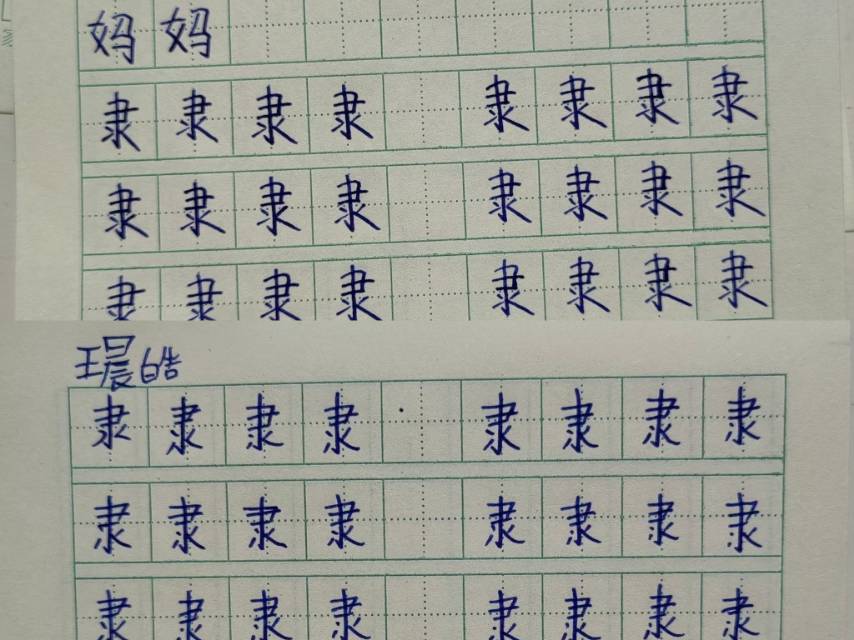 妈妈
隶隶隶隶 隶隶隶隶
隶隶隶隶 隶隶隶隶
隶隶隶隶 隶隶隶隶
王晨皓
隶隶隶隶 隶隶隶隶
隶隶隶隶 隶隶隶隶
隶隶隶隶 隶隶隶隶